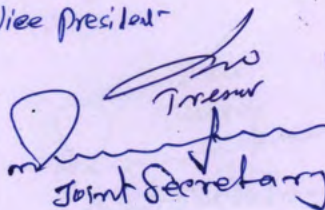 Vice President
Tresur
Joint Secretary